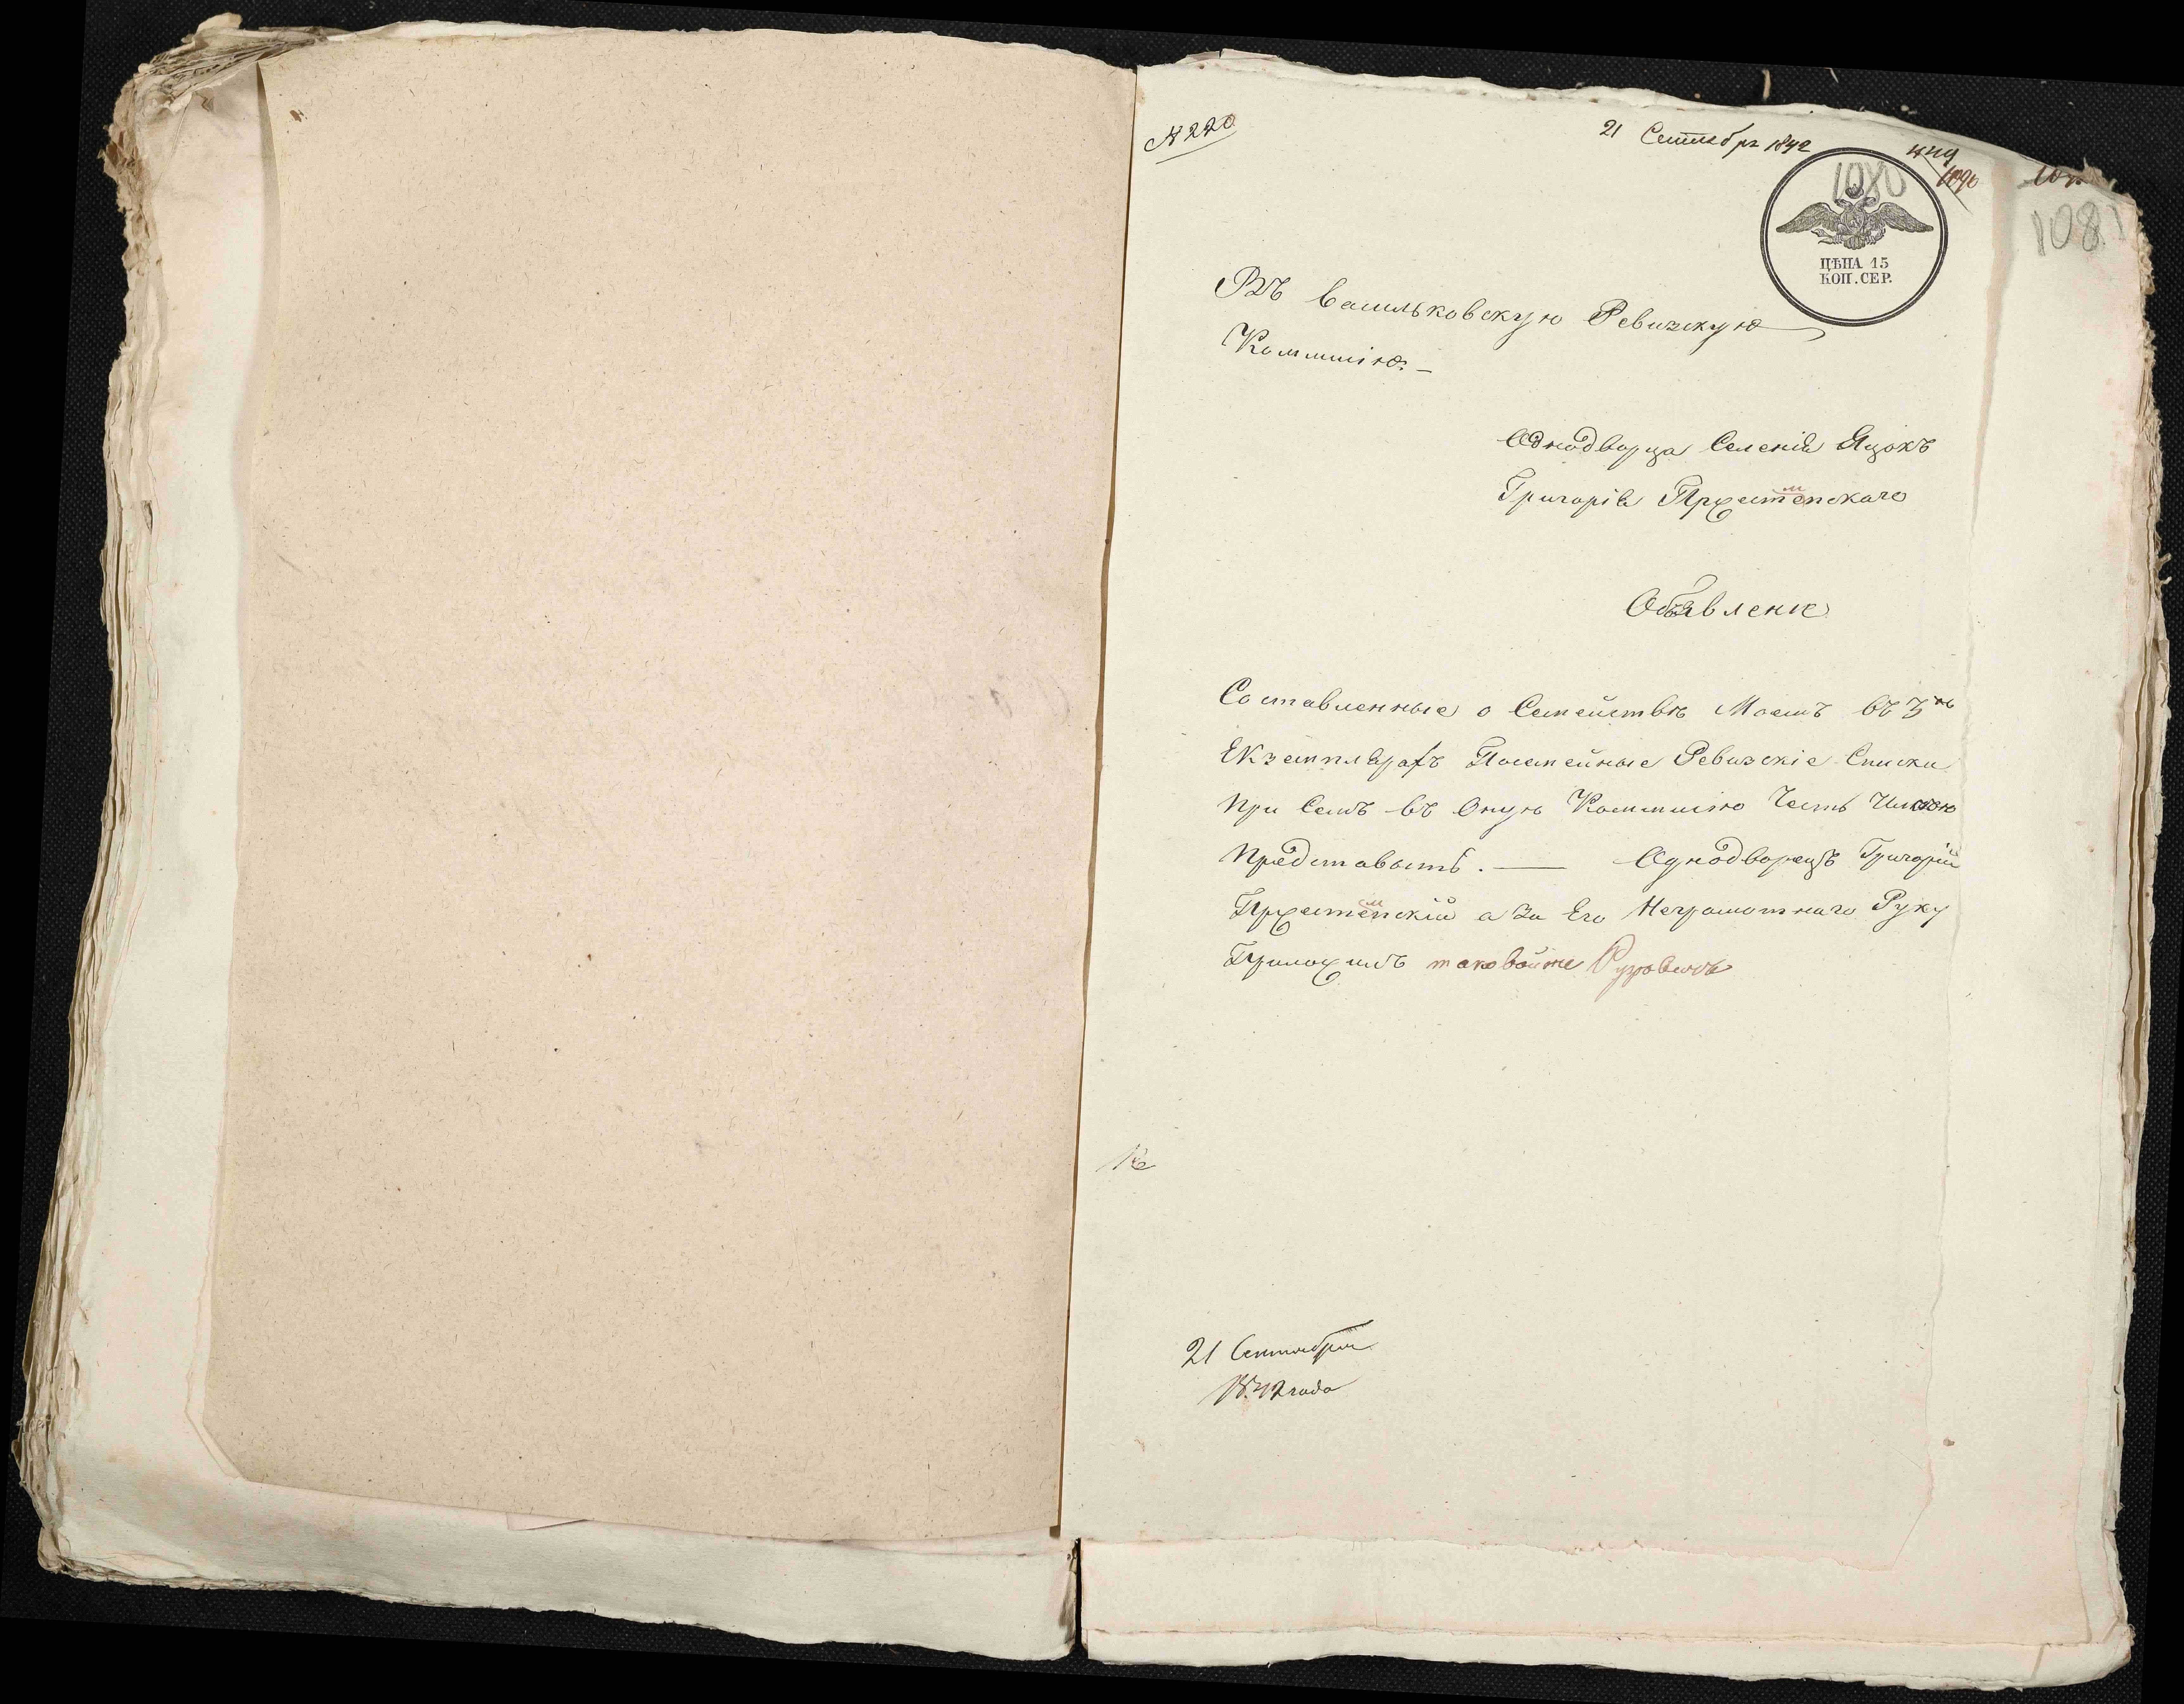 № 220
21 Сентября 1842
1080
1081
ЦѢНА 15
КОП. СЕР.
Въ васильковскую Ревизскую
Коммисію. —
Однодворца Селенія Яцокъ
Григорія
Объявленіе
Составленные о Семействѣ Моемъ въ 3хъ
Екземплярахъ Посемейные Ревизскіе Списки
При Семъ въ Оную Коммисію Честь Имѣю
Представить. — Однодворецъ Григорій
а За Его Неграмотнаго Руку
Приложилъ таковойже
21 Сентября
1842 года